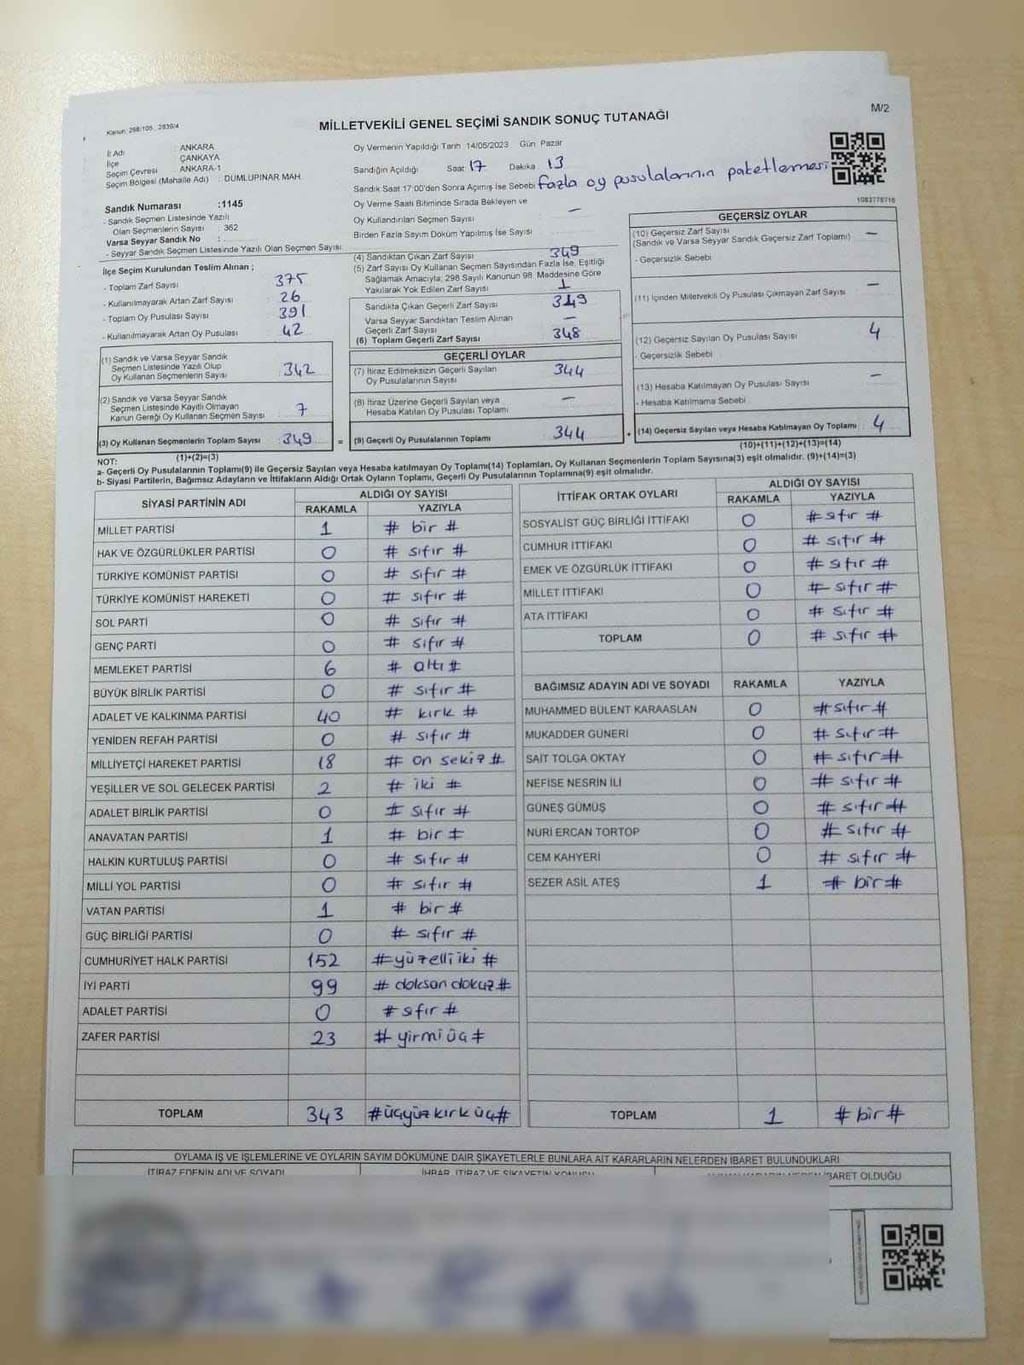 Kanun: 298/105, 2839/4
M/2
MİLLETVEKİLİ GENEL SEÇİMİ SANDIK SONUÇ TUTANAĞI
İl Adı : ANKARA
İlçe : ÇANKAYA
Seçim Çevresi : ANKARA-1
Seçim Bölgesi (Mahalle Adı) : DUMLUPINAR MAH.
Sandık Numarası :1145
- Sandık Seçmen Listesinde Yazılı
Olan Seçmenlerin Sayısı : 362
Varsa Seyyar Sandık No :
- Seyyar Sandık Seçmen Listesinde Yazılı Olan Seçmen Sayısı
Oy Vermenin Yapıldığı Tarih 14/05/2023 Gün Pazar
Sandığın Açıldığı Saat 17 Dakika 13
Sandık Saat 17:00'den Sonra Açılmış İse Sebebi fazla oy pusulalarının paketlemesi
Oy Verme Saati Bitiminde Sırada Bekleyen ve
Oy Kullandırılan Seçmen Sayısı —
Birden Fazla Sayım Döküm Yapılmış İse Sayısı
1083778716
İlçe Seçim Kurulundan Teslim Alınan ;
- Toplam Zarf Sayısı 375
- Kullanılmayarak Artan Zarf Sayısı 26
- Toplam Oy Pusulası Sayısı 391
- Kullanılmayarak Artan Oy Pusulası 42
(1) Sandık ve Varsa Seyyar Sandık
Seçmen Listesinde Yazılı Olup
Oy Kullanan Seçmenlerin Sayısı 342
(2) Sandık ve Varsa Seyyar Sandık
Seçmen Listesinde Kayıtlı Olmayan
Kanun Gereği Oy Kullanan Seçmen Sayısı 7
(3) Oy Kullanan Seçmenlerin Toplam Sayısı 349
(1)+(2)=(3)
(4) Sandıktan Çıkan Zarf Sayısı 349
(5) Zarf Sayısı Oy Kullanan Seçmen Sayısından Fazla İse, Eşitliği
Sağlamak Amacıyla, 298 Sayılı Kanunun 98. Maddesine Göre
Yakılarak Yok Edilen Zarf Sayısı 1
Sandıkta Çıkan Geçerli Zarf Sayısı 349
Varsa Seyyar Sandıktan Teslim Alınan
Geçerli Zarf Sayısı —
(6) Toplam Geçerli Zarf Sayısı 348
GEÇERLİ OYLAR
(7) İtiraz Edilmeksizin Geçerli Sayılan
Oy Pusulalarının Sayısı 344
(8) İtiraz Üzerine Geçerli Sayılan veya
Hesaba Katılan Oy Pusulası Toplamı —
= (9) Geçerli Oy Pusulalarının Toplamı 344
GEÇERSİZ OYLAR
(10) Geçersiz Zarf Sayısı —
(Sandık ve Varsa Seyyar Sandık Geçersiz Zarf Toplamı)
- Geçersizlik Sebebi
(11) İçinden Milletvekili Oy Pusulası Çıkmayan Zarf Sayısı —
(12) Geçersiz Sayılan Oy Pusulası Sayısı 4
- Geçersizlik Sebebi
(13) Hesaba Katılmayan Oy Pusulası Sayısı —
- Hesaba Katılmama Sebebi
+ (14) Geçersiz Sayılan veya Hesaba Katılmayan Oy Toplamı 4
(10)+(11)+(12)+(13)=(14)
NOT:
a- Geçerli Oy Pusulalarının Toplamı(9) ile Geçersiz Sayılan veya Hesaba katılmayan Oy Toplamı(14) Toplamları, Oy Kullanan Seçmenlerin Toplam Sayısına(3) eşit olmalıdır. (9)+(14)=(3)
b- Siyasi Partilerin, Bağımsız Adayların ve İttifakların Aldığı Ortak Oyların Toplamı, Geçerli Oy Pusulalarının Toplamına(9) eşit olmalıdır.
SİYASİ PARTİNİN ADI ALDIĞI OY SAYISI
RAKAMLA YAZIYLA
MİLLET PARTİSİ 1 # bir #
HAK VE ÖZGÜRLÜKLER PARTİSİ 0 # sıfır #
TÜRKİYE KOMÜNİST PARTİSİ 0 # sıfır #
TÜRKİYE KOMÜNİST HAREKETİ 0 # sıfır #
SOL PARTİ 0 # sıfır #
GENÇ PARTİ 0 # sıfır #
MEMLEKET PARTİSİ 6 # altı #
BÜYÜK BİRLİK PARTİSİ 0 # sıfır #
ADALET VE KALKINMA PARTİSİ 40 # kırk #
YENİDEN REFAH PARTİSİ 0 # sıfır #
MİLLİYETÇİ HAREKET PARTİSİ 18 # on sekiz #
YEŞİLLER VE SOL GELECEK PARTİSİ 2 # iki #
ADALET BİRLİK PARTİSİ 0 # sıfır #
ANAVATAN PARTİSİ 1 # bir #
HALKIN KURTULUŞ PARTİSİ 0 # sıfır #
MİLLİ YOL PARTİSİ 0 # sıfır #
VATAN PARTİSİ 1 # bir #
GÜÇ BİRLİĞİ PARTİSİ 0 # sıfır #
CUMHURİYET HALK PARTİSİ 152 # yüzelliiki #
İYİ PARTİ 99 # doksan dokuz #
ADALET PARTİSİ 0 # sfır #
ZAFER PARTİSİ 23 # yirmi üç #
TOPLAM 343 # üçyüz kırk üç #
İTTİFAK ORTAK OYLARI ALDIĞI OY SAYISI
RAKAMLA YAZIYLA
SOSYALİST GÜÇ BİRLİĞİ İTTİFAKI 0 # sıfır #
CUMHUR İTTİFAKI 0 # sıfır #
EMEK VE ÖZGÜRLÜK İTTİFAKI 0 # sıfır #
MİLLET İTTİFAKI 0 # sıfır #
ATA İTTİFAKI 0 # sıfır #
TOPLAM 0 # sıfır #
BAĞIMSIZ ADAYIN ADI VE SOYADI RAKAMLA YAZIYLA
MUHAMMED BÜLENT KARAASLAN 0 # sıfır #
MUKADDER GÜNERİ 0 # sıfır #
SAİT TOLGA OKTAY 0 # sıfır #
NEFİSE NESRİN İLİ 0 # sıfır #
GÜNEŞ GÜMÜŞ 0 # sıfır #
NURİ ERCAN TORTOP 0 # sıfır #
CEM KAHYERİ 0 # sıfır #
SEZER ASİL ATEŞ 1 # bir #
TOPLAM 1 # bir #
OYLAMA İŞ VE İŞLEMLERİNE VE OYLARIN SAYIM DÖKÜMÜNE DAİR ŞİKAYETLERLE BUNLARA AİT KARARLARIN NELERDEN İBARET BULUNDUKLARI
İTİRAZ EDENİN ADI VE SOYADI İHBAR, İTİRAZ VE ŞİKAYETİN KONUSU İBARET OLDUĞU